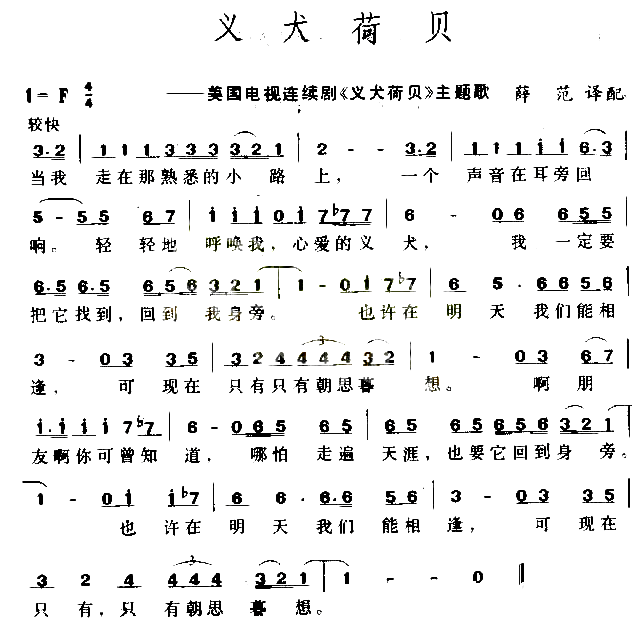 义犬荷贝
1=F 4/4 ——美国电视连续剧《义犬荷贝》主题歌 薛 范 译配
较快
3·2 | 1 1 1 3 3 3 3 2 1 | 2 - - 3·2 | 1 1 1 1 1 6·3 |
当我 走在那熟悉的小 路 上， 一个 声音在耳旁回
5 - 5 5 6 7 | 1 1 1 0 1 7 ♭7 7 | 6 - 0 6 6 5 5 |
响。轻 轻地 呼唤我，心爱的义 犬， 我 一定要
6·5 6·5 6 5 6 3 2 1 | 1 - 0 1 7 ♭7 | 6 5 · 6 6 5 6 |
把它找到，回到 我身旁。 也许在 明 天 我们能相
3 - 0 3 3 5 | 3 2 4 4 4 4 3 2 | 1 - 0 3 6 7 |
逢， 可 现在 只有只有朝思暮 想。 啊 朋
1·1 1 1 7 ♭7 | 6 - 0 6 5 6 5 | 6·5 6 5 6 5 6 3 2 1 |
友啊你可曾知 道， 哪怕 走遍 天涯，也要它回到身 旁。
1 - 0 1 1 ♭7 | 6 6 · 6·6 5 6 5 2 | 3 - 0 3 3 5 |
也 许在 明 天我们 能相 逢， 可 现在
3 2 4 4 4 4 3 2 1 | 1 - - 0 ‖
只 有，只 有朝思 暮 想。